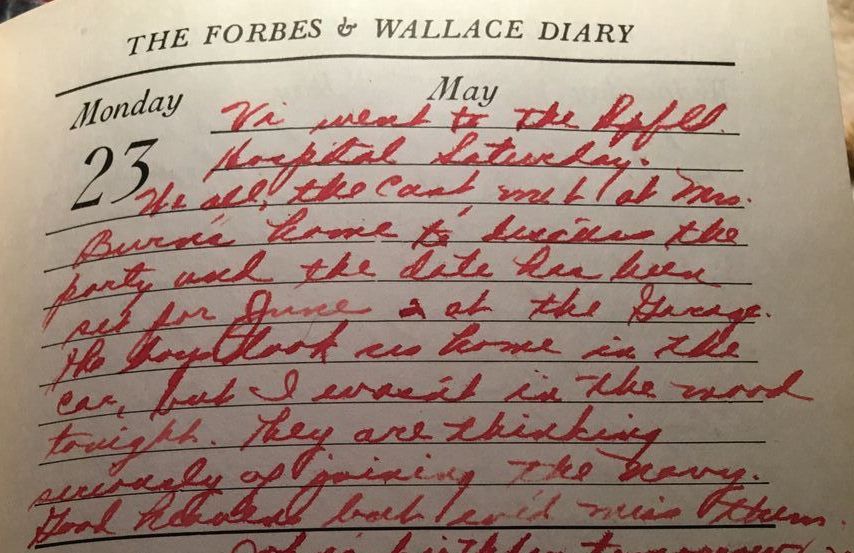 THE FORBES & WALLACE DIARY
Monday May
23
Vi went to the Spfld.
Hospital Saturday.
We all, the cast, met at Mrs.
Burn's home to discuss the
party and the date has been
set for June 2 at the Garage.
The boys took us home in the
car, but I wasn't in the mood
tonight. They are thinking
seriously of joining the navy.
Good heavens but we'd miss them.
birthday tomorrow